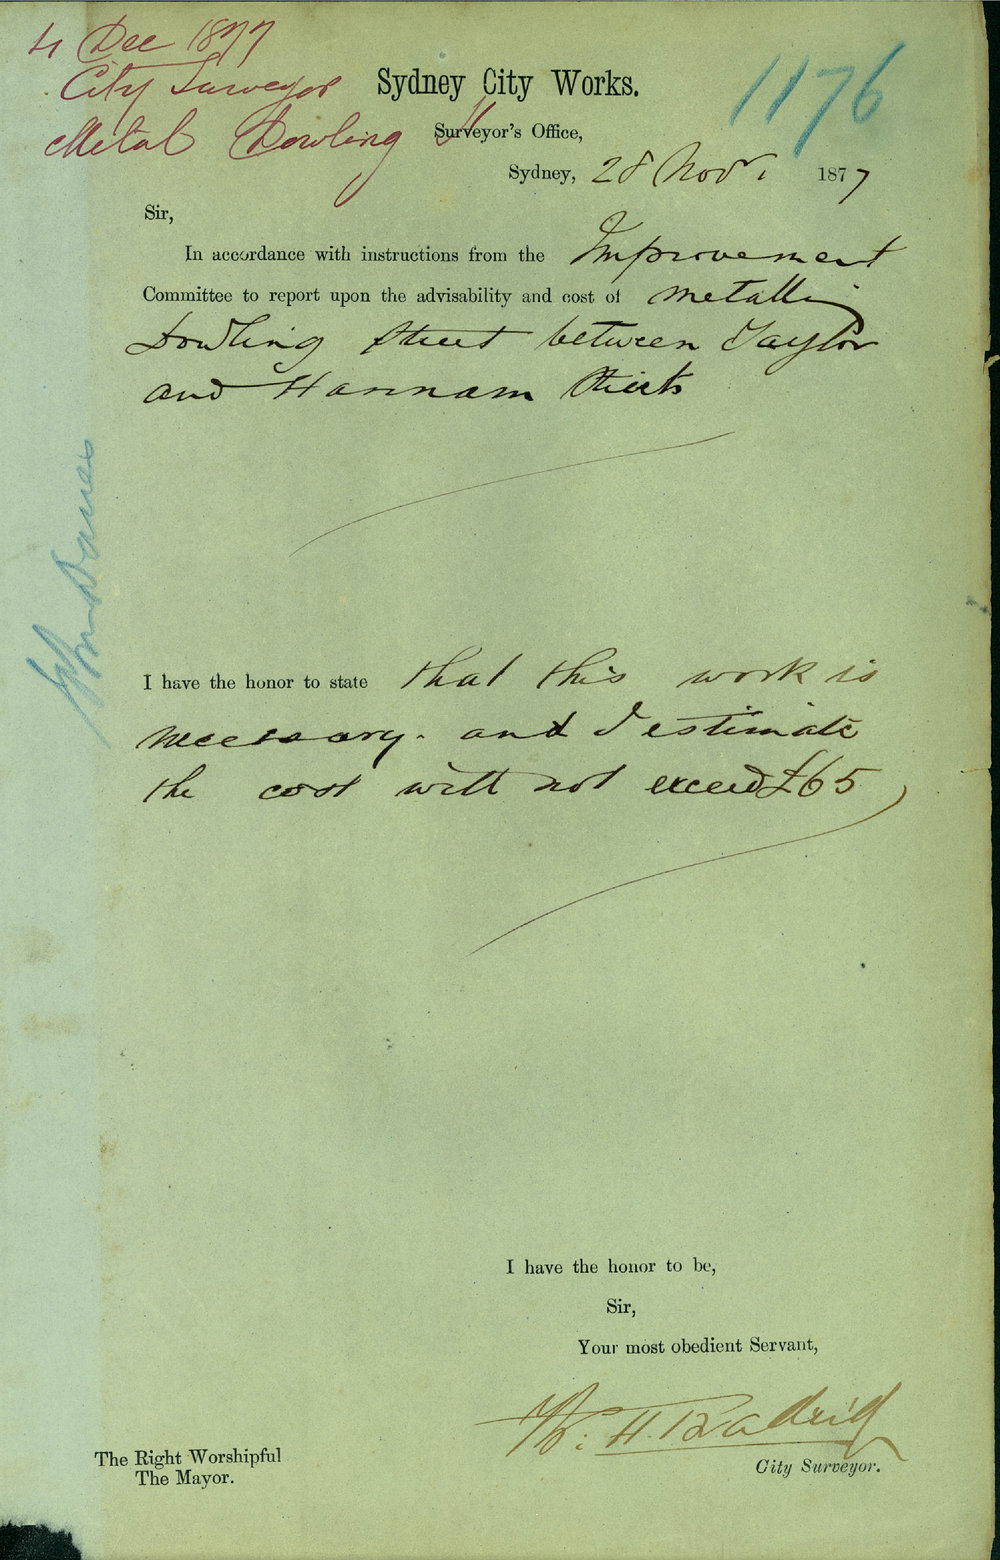 4 Dec 1877
City Surveyor
Metal Dowling St
1176
Sydney City Works.
Surveyor's Office,
Sydney, 28 Novr. 1877
Sir,
In accordance with instructions from the Improvement
Committee to report upon the advisability and cost of metalling
Dowling Street between Taylor
and Hannam Streets
I have the honor to state that this work is
necessary. and I estimate
the cost will not exceed £65
I have the honor to be,
Sir,
Your most obedient Servant,
City Surveyor.
The Right Worshipful
The Mayor.